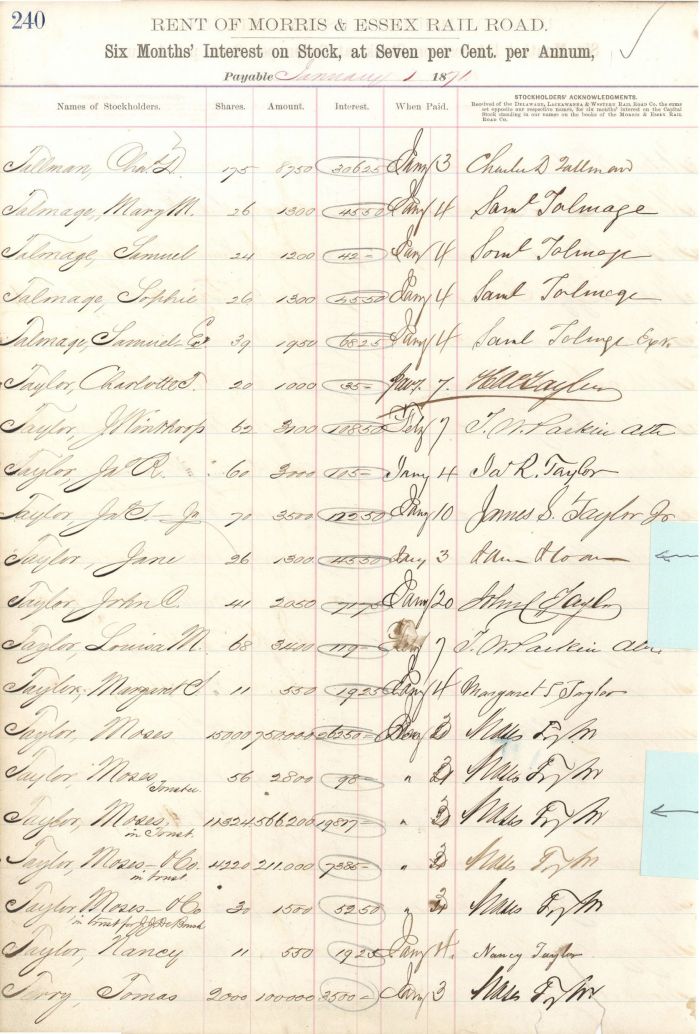 240
RENT OF MORRIS & ESSEX RAIL ROAD.
Six Months' Interest on Stock, at Seven per Cent. per Annum,
Payable January 1 1871
Names of Stockholders. Shares. Amount. Interest. When Paid. STOCKHOLDERS' ACKNOWLEDGMENTS.
Received of the DELAWARE, LACKAWANNA & WESTERN RAIL ROAD CO. the sums
set opposite our respective names, for six months' interest on the Capital
Stock standing in our names on the books of the MORRIS & ESSEX RAIL
ROAD CO.
Tallman, Chas. D. 175 8750 306 25 Jany 3 Charles D Tallman
Talmage, Mary M. 26 1300 45 50 Jany 4 Saml Talmage
Talmage, Samuel 24 1200 42 - Jany 4 Saml Talmage
Talmage, Sophie 26 1300 45 50 Jany 4 Saml Talmage
Talmage, Samuel Exr 39 1950 68 25 Jany 4 Saml Talmage Exr
Taylor, Charlotte T. 20 1000 35 - 7.
Taylor, J Winthrop 62 3100 108 50 7 T. W. Larkin Atty
Taylor, Jas R. 60 3000 105 - Jany 4 Jas R. Taylor
Taylor, Jas S Jr 70 3500 122 50 Jany 10 James S. Taylor Jr
Taylor, Jane 26 1300 45 50 Jany 3
Taylor, John C. 41 2050 71 75 Jany 20 John C Taylor
Taylor, Louisa M. 68 3400 119 - 7 T. W. Larkin Atty
Taylor, Margaret S 11 550 19 25 Jany 4 Margaret S Taylor
Taylor, Moses 15000 750000 26250 -
Taylor, Moses 56 2800 98 - "
Trustee
Taylor, Moses 11324 566200 19817 - "
in Trust
Taylor, Moses & Co. 4220 211.000 7385 - "
in trust
Taylor Moses & Co 30 1500 52 50 "
in trust for
Taylor, Nancy 11 550 19 25 Jany 4. Nancy Taylor
Terry, Tomas 2000 100000 3500 - Jany 3